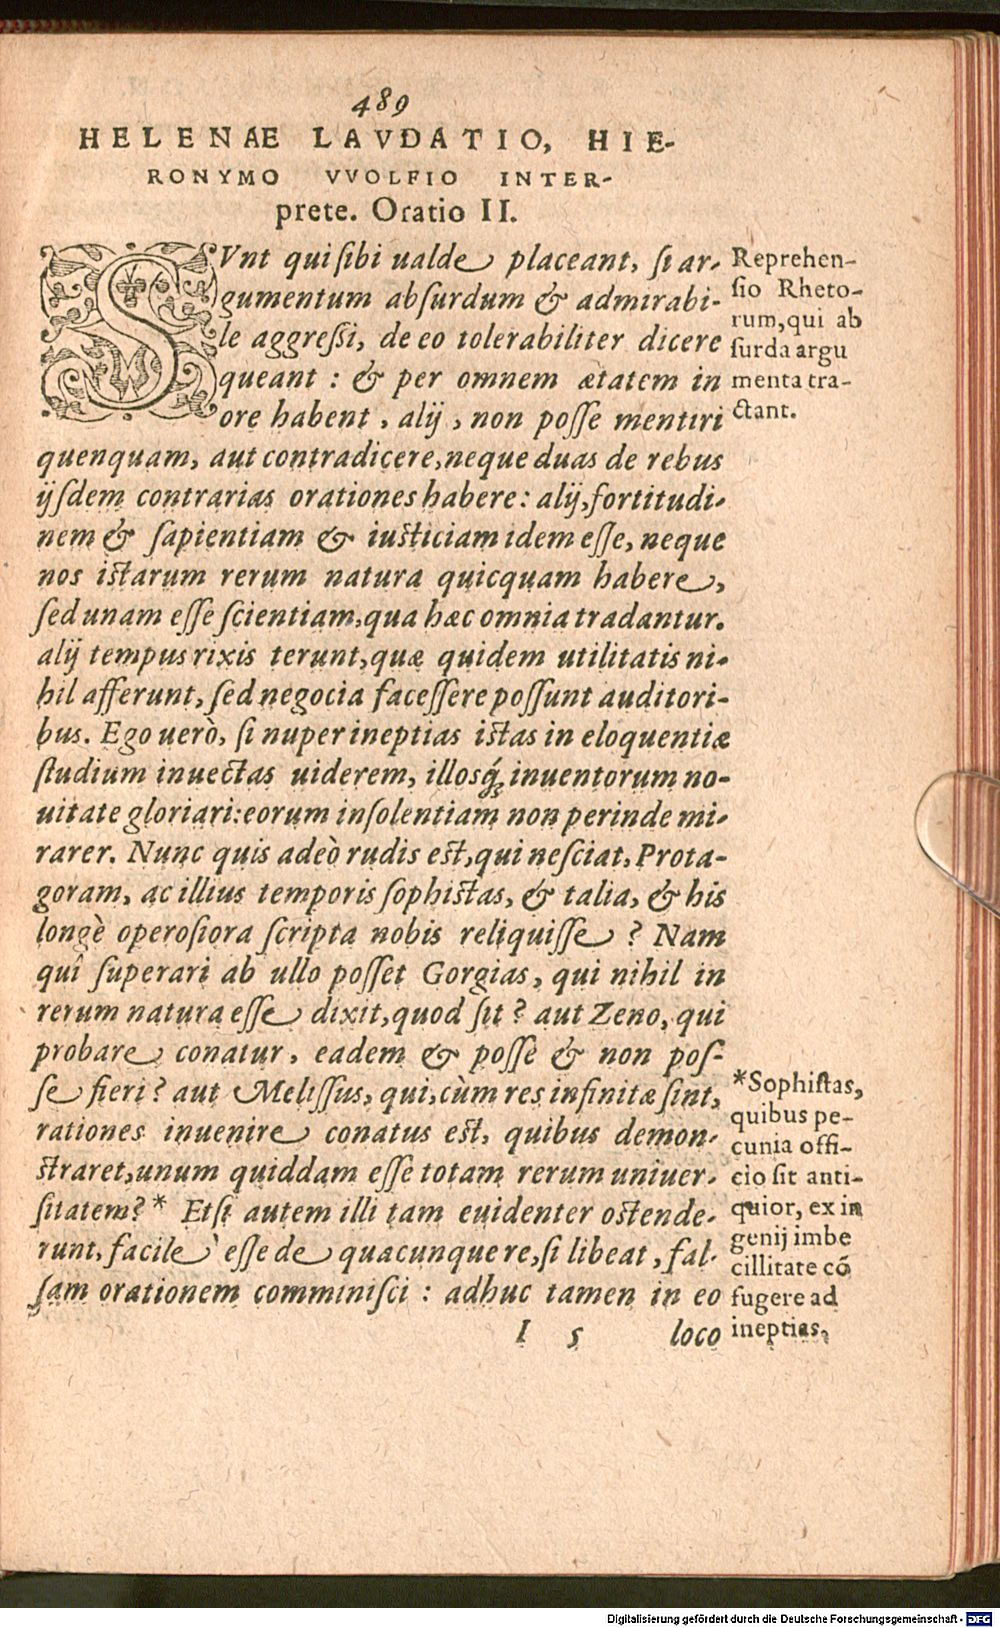 489
HELENAE LAVDATIO, HIE-
RONYMO VVOLFIO INTER-
prete. Oratio II.
SVnt qui sibi ualde placeant, si ar-
gumentum absurdum & admirabi-
le aggressi, de eo tolerabiliter dicere
queant : & per omnem ætatem in
ore habent, alij, non posse mentiri
quenquam, aut contradicere, neque duas de rebus
ijsdem contrarias orationes habere: alij, fortitudi-
nem & sapientiam & iusticiam idem esse, neque
nos istarum rerum natura quicquam habere,
sed unam esse scientiam, qua hæc omnia tradantur.
alij tempus rixis terunt, quæ quidem utilitatis ni-
hil afferunt, sed negocia facessere possunt auditori-
bus. Ego uerò, si nuper ineptias istas in eloquentiæ
studium inuectas uiderem, illosq́; inuentorum no-
uitate gloriari: eorum insolentiam non perinde mi-
rarer. Nunc quis adeò rudis est, qui nesciat, Prota-
goram, ac illius temporis sophistas, & talia, & his
longè operosiora scripta nobis reliquisse? Nam
quî superari ab ullo posset Gorgias, qui nihil in
rerum natura esse dixit, quod sit? aut Zeno, qui
probare conatur, eadem & posse & non pos-
se fieri? aut Melissus, qui, cùm res infinitæ sint,
rationes inuenire conatus est, quibus demon-
straret, unum quiddam esse totam rerum uniuer-
sitatem?* Etsi autem illi tam euidenter ostende-
runt, facile esse de quacunque re, si libeat, fal-
sam orationem comminisci : adhuc tamen in eo
I 5 loco
Reprehen-
sio Rheto-
rum, qui ab
surda argu
menta tra-
ctant.
*Sophistas,
quibus pe-
cunia offi-
cio sit anti-
quior, ex in
genij imbe
cillitate cõ
fugere ad
ineptias,
Digitalisierung gefördert durch die Deutsche Forschungsgemeinschaft - DFG